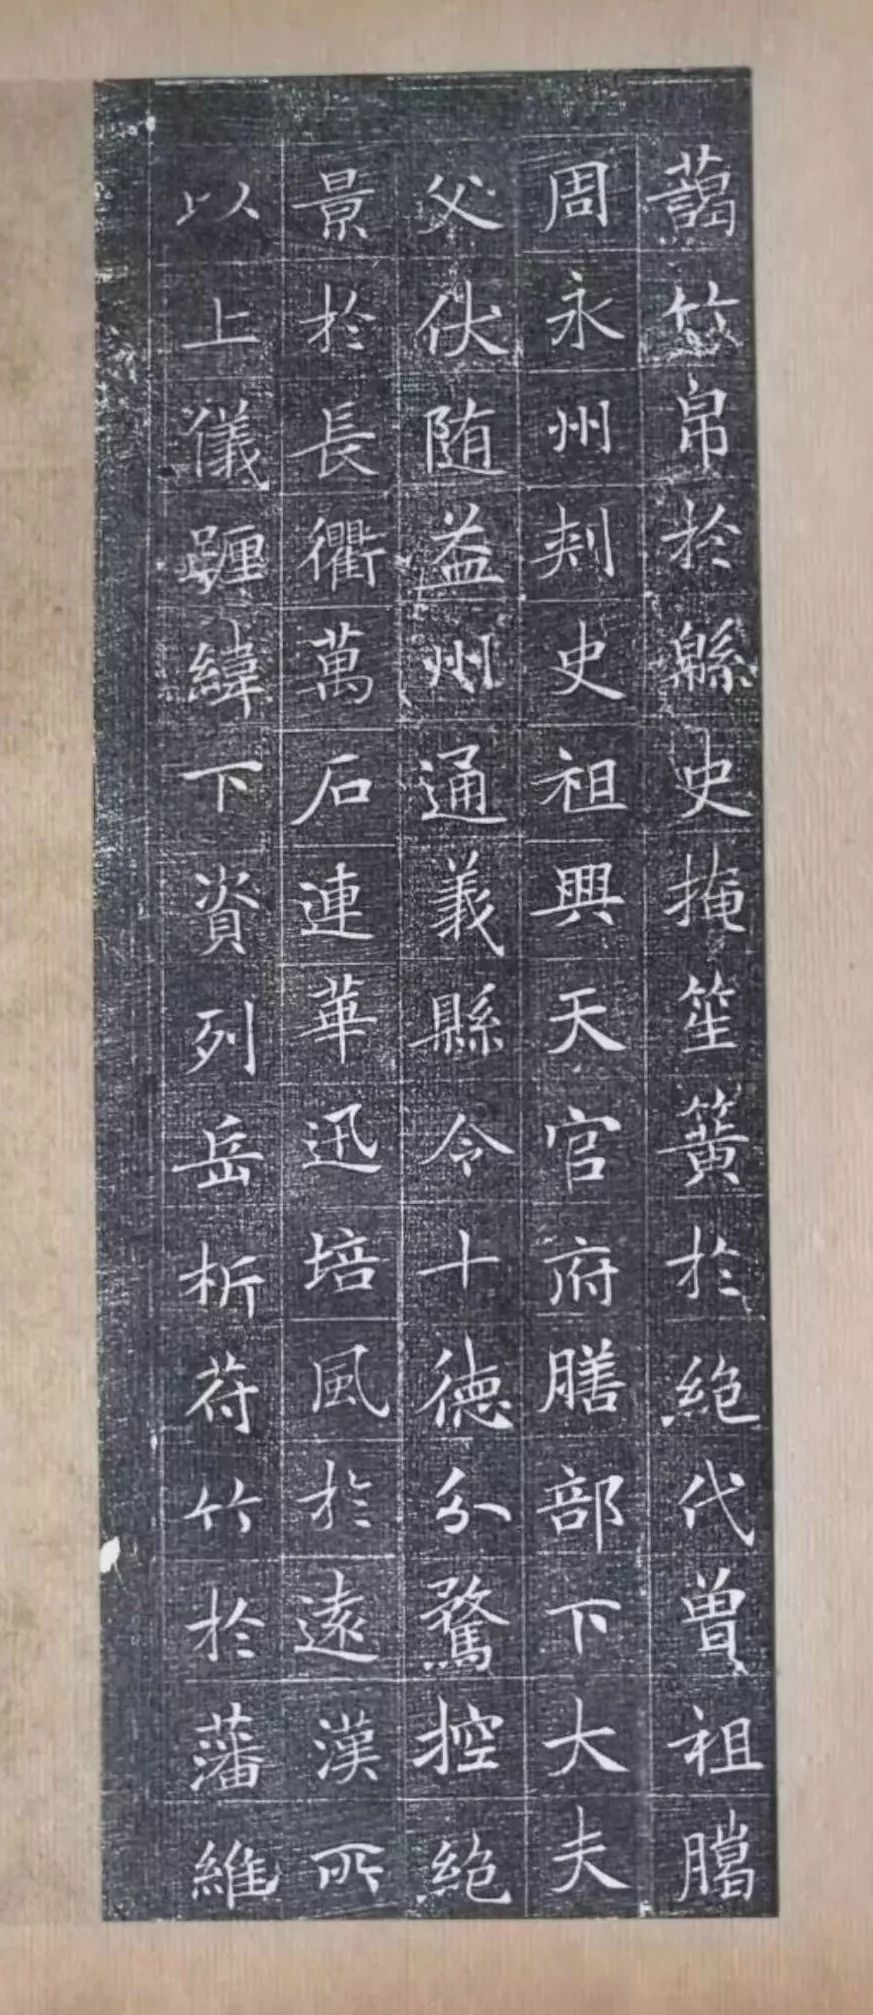 蔼竹帛於緜史掩笙簧於絶代曽祖騰
周永州刾史祖興天官府膳部下大夫
父伏随益州通義縣令十德分騖控絶
景於長衢萬石連華迅培風於遠漢所
以上儀躔緯下資列岳析苻竹於藩維